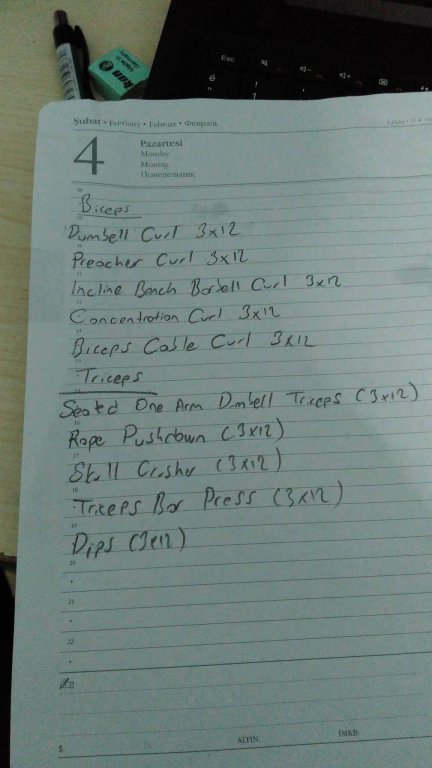 Esc
Şubat • February • Februar • Февраль
4
Pazartesi
Monday
Montag
Понедельник
Biceps
Dumbell Curl 3x12
Preacher Curl 3x12
Incline Bench Barbell Curl 3x12
Concentration Curl 3x12
Biceps Cable Curl 3x12
Triceps
Seated One Arm Dumbell Triceps (3x12)
Rope Pushdown (3x12)
Skull Crusher (3x12)
Triceps Bar Press (3x12)
Dips (3x12)
20
21
22
$
ALTIN
İMKB